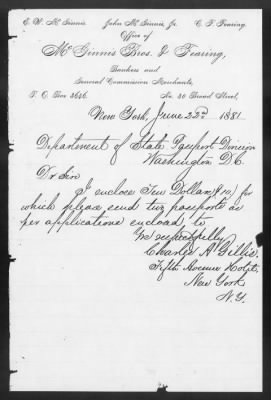 E. W. McGinnis. John McGinnis, Jr. C. F. Fearing.
Office of
McGinnis Bros. & Fearing,
Bankers and
General Commission Merchants,
P. O. Box 3646. No. 30 Broad Street,
New York, June 22d 1881
Department of State Passport Division
Washington D.C.
Dr Sir
I enclose Ten Dollars for
which please send two passports as
per applications enclosed, to
Yrs respectfully
Charles A Gillis.
Fifth Avenue Hotel.
New York
N.Y.